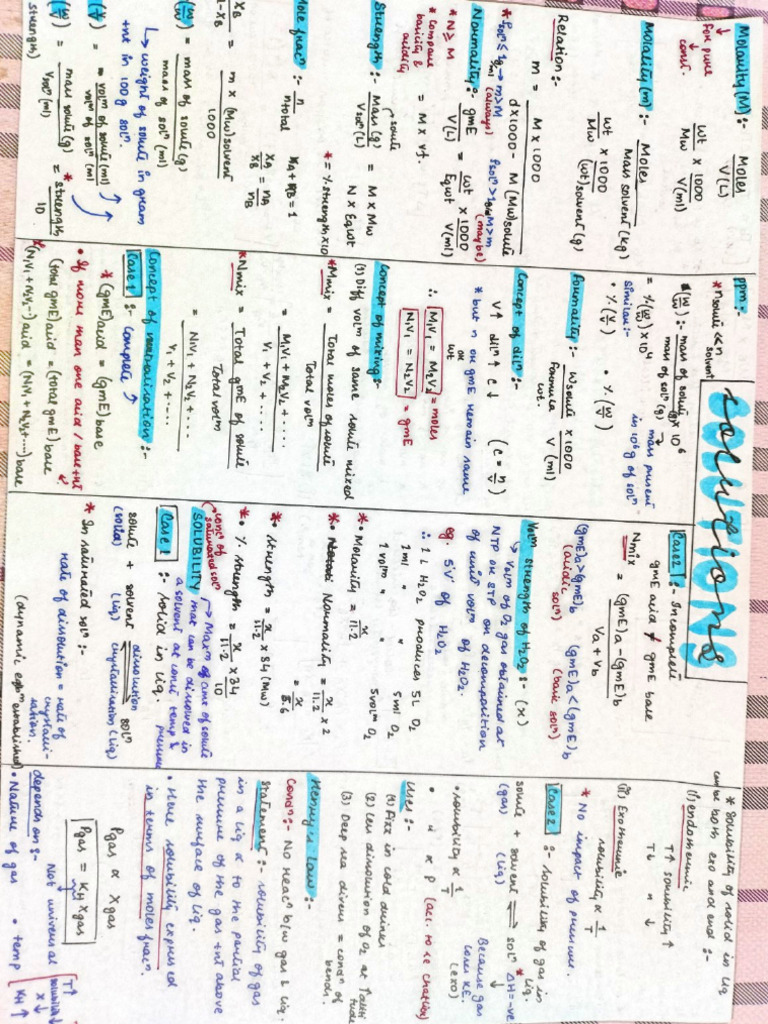 SOLUTIONS
Molarity (M) :- Moles / V(L)
for pure ↓ const.
wt/Mw × 1000/V(ml)
Molality (m) :- Moles / Mass solvent (kg)
wt × 1000 / Mw (wt)solvent (g)
Relation :-
m = M × 1000 / d×1000 - M (Mw)solute
Normality :- gmE / V(L) = wt/Eqwt × 1000/V(ml)
* N ≥ M
= M × v.f.
* Compare basicity & acidity
Strength :- Mass (g) solute / Vsolⁿ (L) = M × Mw
N × Eqwt
* = % strength × 10
Mole fracⁿ :- n / ntotal
xA + xB = 1
xA/xB = nA/nB
xB/1-xB = m × (Mw)solvent / 1000
(w/w) = mass of solute (g) / mass of solⁿ (g)
↳ weight of solute in gram +nt in 100g solⁿ.
(v/v) = volᵐ of solute (ml) / volᵐ of solⁿ (ml)
(w/v) = mass solute (g) / Vsolⁿ (ml) * = strength / 10
strength)
ppm :-
* nsolute << n solvent
(w/w) :- mass of solute (g) × 10⁶ / mass of solⁿ (g)
→ mass present in 10⁶ g of solⁿ
= %(w/w) × 10⁴
similar :- • %(w/v)
• %(v/v)
Formality :- Wsolute × 1000 / Formula wt. V (ml)
Concept of dilⁿ :-
V↑ dilⁿ ↑ C ↓ (C = n/V)
* but n or gmE remain same
or
wt
∴ M1V1 = M2V2 = moles
N1V1 = N2V2 = gmE
Concept of mixing :-
(1) Diff volᵐ of same solute mixed
* Mmix = Total moles of solute / Total volᵐ
= M1V1 + M2V2 + .... / V1 + V2 + ....
* Nmix = Total gmE of solute / Total volᵐ
= N1V1 + N2V2 + ... / V1 + V2 + ....
Concept of neutralization :-
Case 1 :- Complete ↑
* (gmE)acid = (gmE)base
• If more than one acid / base +nt
(total gmE)acid = (total gmE)base
(N1V1 + N2V2 ...)acid = (N1V1 + N2V2 + ....)base
Case 2 :- Incomplete
gmE acid ≠ gmE base
Nmix = (gmE)a - (gmE)b / Va + Vb
(gmE)a > (gmE)b (gmE)a < (gmE)b
(acidic solⁿ) (basic solⁿ)
Volᵐ strength of H2O2 :- (x)
↳ Volᵐ of O2 gas obtained at NTP or STP on decomposition of unit volᵐ of H2O2.
eg. 5V of H2O2
∴ 1 L H2O2 produces 5L O2
1 ml " " 5 ml O2
1 volᵐ " " 5 volᵐ O2
* • Molarity = x / 11.2
* • Normality = x / 11.2 × 2 = x / 5.6
* • Strength = x / 11.2 × 34 (Mw)
* • % strength = x / 11.2 × 34 / 10
concⁿ of saturated solⁿ
SOLUBILITY → Maxᵐ amt of solute that can be dissolved in a solvent at const temp & pressure
Case 1 :- Solid in Liq.
solute + solvent ⇌ solⁿ
(solid) (liq) (liq)
dissolution
crystallization
* In saturated solⁿ :-
rate of dissolution = rate of crystallization.
(dynamic eqbᵐ established)
* Solubility of solid in liq can be both exo and end :-
(i) endothermic
T↑ solubility ↑
T↓ " ↓
(ii) Exothermic
solubility ∝ 1/T
* No impact of pressure.
Case 2 :- Solubility of gas in liq.
solute + solvent ⇌ solⁿ * ΔH = -ve
(gas) (liq)
Because gas loses K.E. (exo)
• Solubility ∝ 1/T
• " ∝ P (acc. to le chatlier)
Uses :-
(1) Fizz in cold drinks
(2) Less dissolution of O2 at ↑ altitude
(3) Deep sea divers = condⁿ of bends.
Henry's Law :-
Condⁿ :- No reacⁿ b/w gas & liq.
Statement :- solubility of gas in a liq ∝ to the partial pressure of the gas +nt above the surface of liq.
• Here solubility expressed in terms of moles fracⁿ.
Pgas ∝ Xgas
Pgas = KH Xgas
↳ Not universal
depends on :-
• Nature of gas • temp
T↑ solubility ↓ X↓ KH ↑